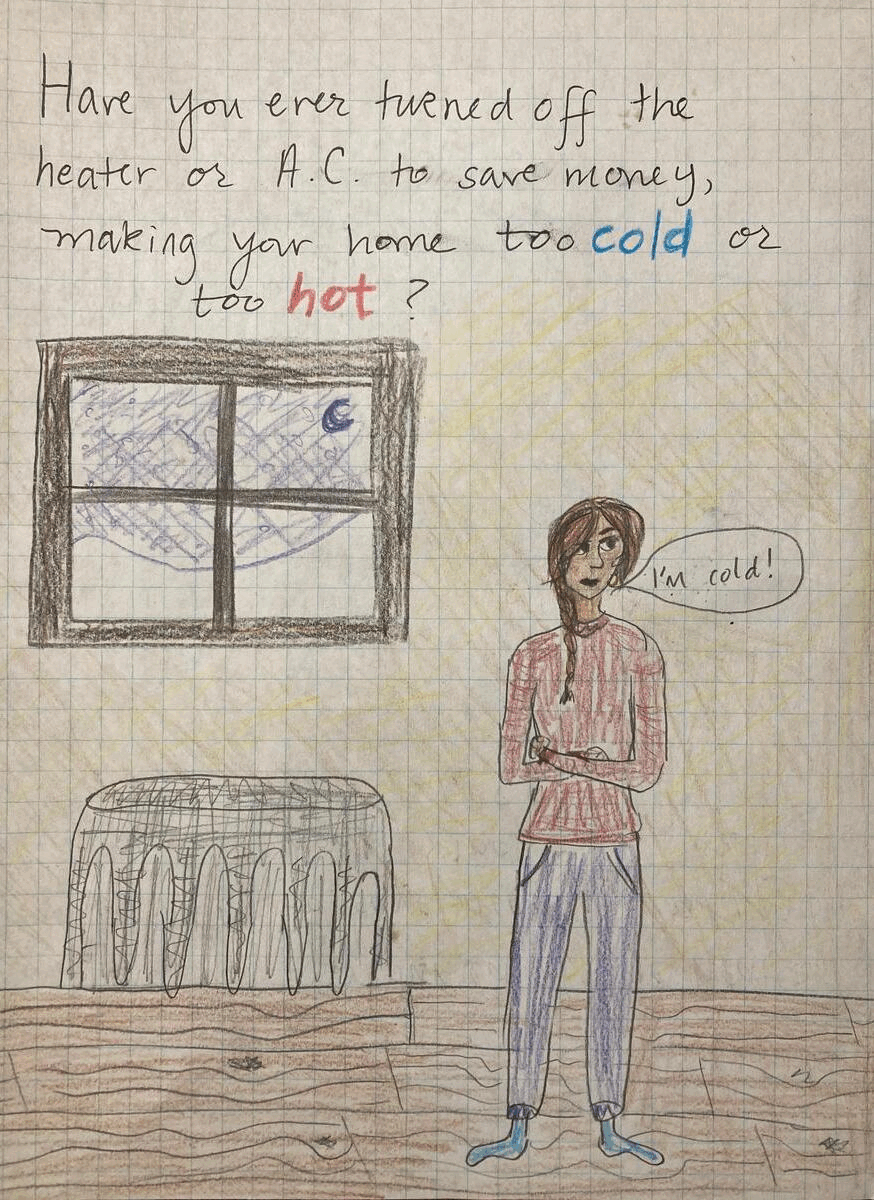 Have you ever turned off the
heater or A.C. to save money,
making your home too cold or
too hot ?
I'm cold!